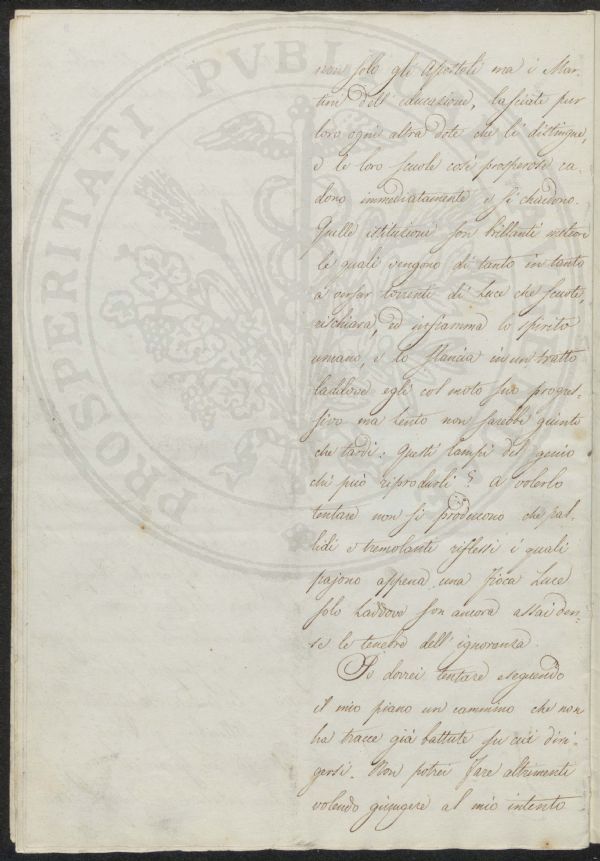 non solo gli Apostoli ma i Mar-
tiri dell' educazione, lasciate pur
loro ogni altra dote che li distingue,
e le loro scuole così prosperose ca-
dono immediatamente e si chiudono.
Quelle istituzioni son brillanti meteore
le quali vengono di tanto in tanto
a versar torrenti di Luce che scuote,
rischiara, ed infiamma lo spirito
umano, e lo slancia in un tratto
laddove egli col moto suo progres-
sivo ma lento non sarebbe giunto
che tardi: Questi lampi del genio
chi può riprodurli? A volerlo
tentare non si producono che pal-
lidi e tremolanti riflessi i quali
pajono appena una fioca Luce
solo laddove son ancora assai den-
se le tenebre dell' ignoranza.
Io dovrei tentare eseguendo
il mio piano un cammino che non
ha tracce già battute su cui diri-
gersi. Non potrei fare altrimenti
volendo giugere al mio intento
PROSPERITATI PVBLI